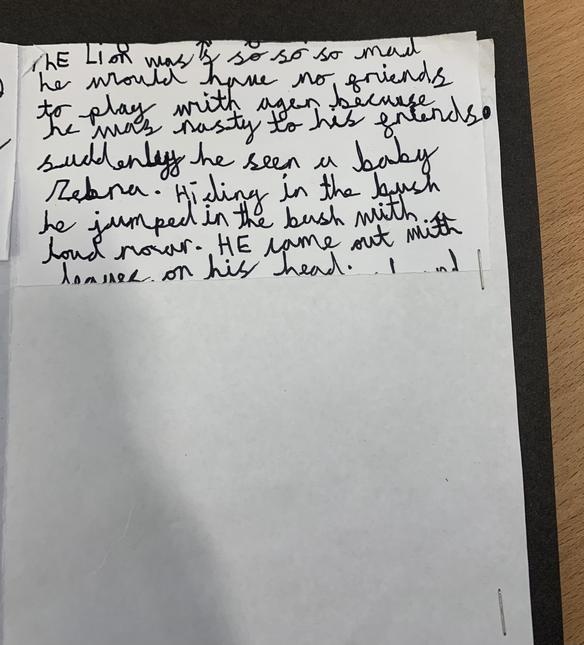 ThE Lion was so so so mad
he would have no friends
to play with agen because
he was nasty to his friends.
suddenley he seen a baby
Zebra. Hiding in the bush
he jumped in the bush with a
loud rowar. HE came out with
leaves on his head.